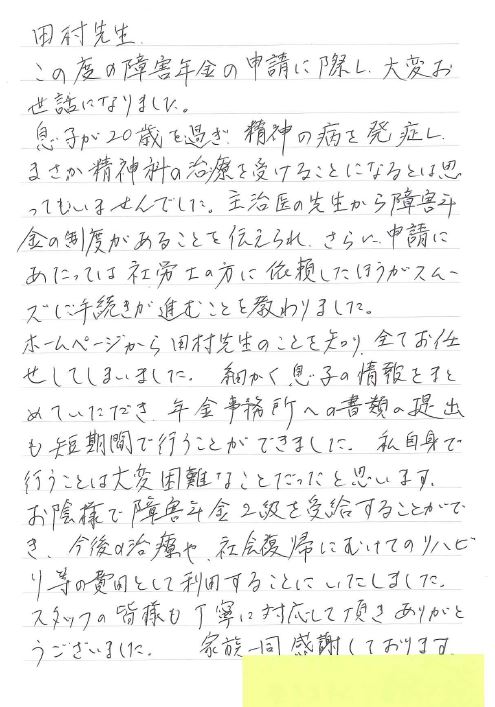 田村先生
この度の障害年金の申請に際し、大変お
世話になりました。
息子が20歳を過ぎ、精神の病を発症し、
まさか精神科の治療を受けることになるとは思
ってもいませんでした。主治医の先生から障害年
金の制度があることを伝えられ、さらに、申請に
あたっては社労士の方に依頼したほうがスムー
ズに手続きが進むことを教わりました。
ホームページから田村先生のことを知り、全てお任
せしてしまいました。細かく、息子の情報をまと
めていただき、年金事務所への書類の提出
も短期間で行うことができました。私自身で
行うことは大変困難なことだったと思います。
お陰様で障害年金2級を受給することがで
き、今後の治療や、社会復帰にむけてのリハビ
リ等の費用として利用することにいたしました。
スタッフの皆様も丁寧に対応して頂きありがと
うございました。 家族一同感謝しております。